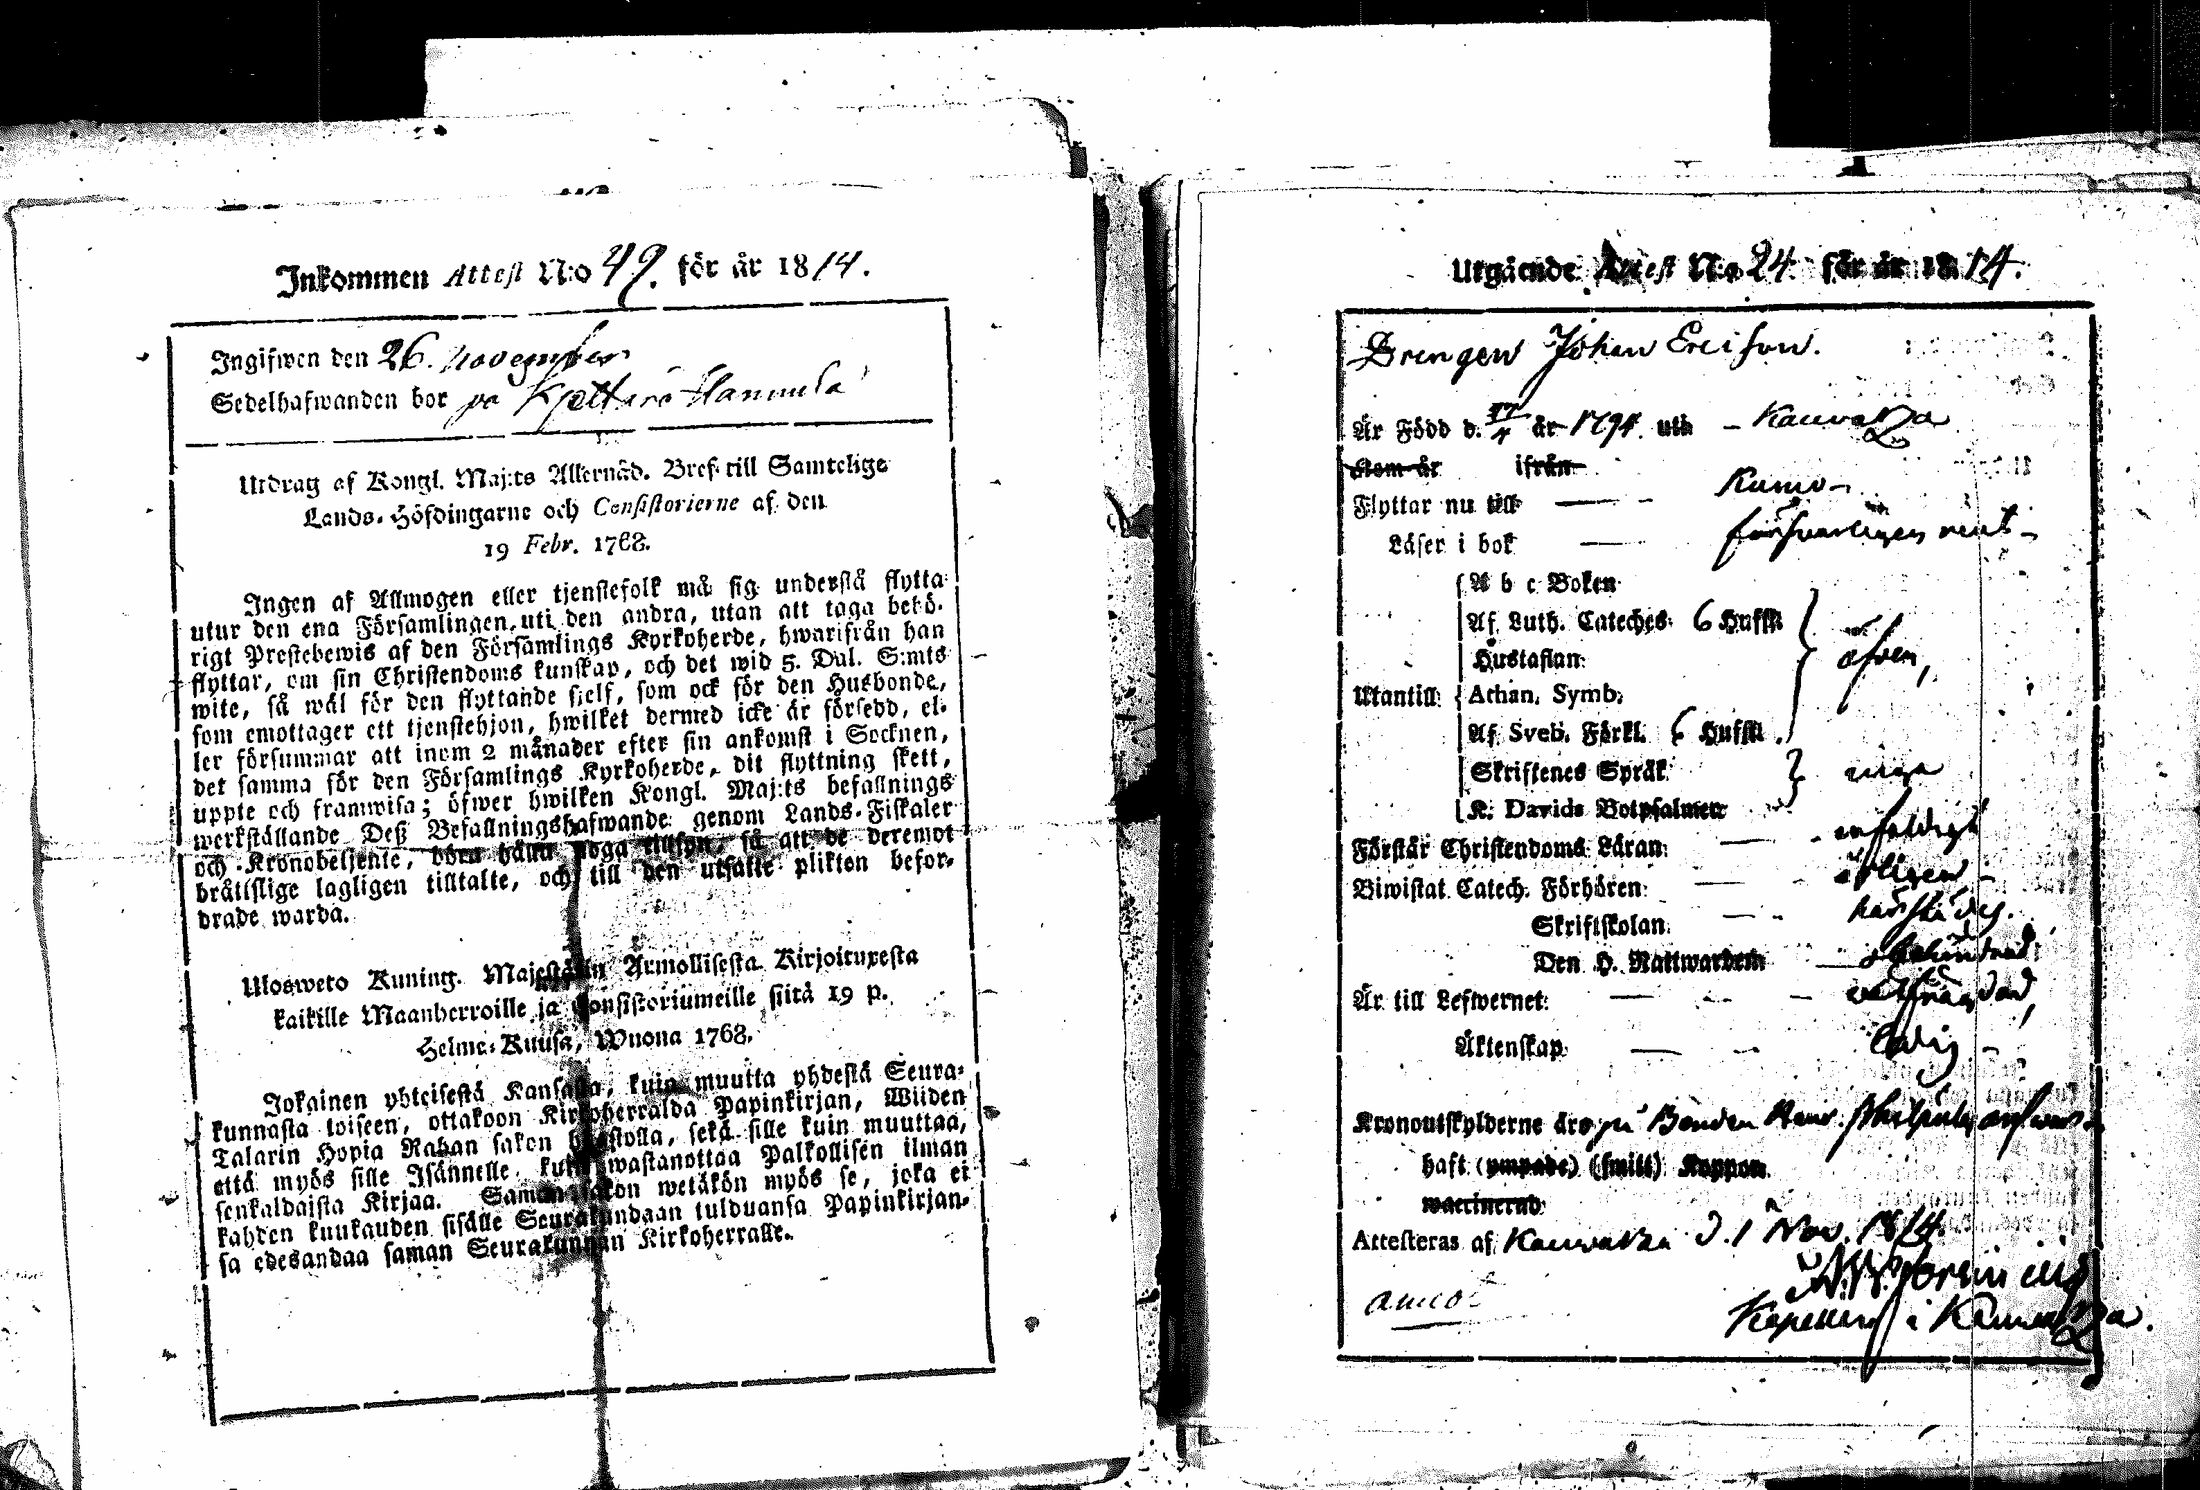 Inkommen Attest N:o 49. för år 1814.
Ingifwen den 26. november
Sedelhafwanden bor på Kjettärä Hannula
Utdrag af Kongl. Maj:ts Allernåd. Bref till Samtelige
Lands-Höfdingarne och Consistorierne af den
19 Febr. 1768.
Ingen af Allmogen eller tjenstefolk må sig understå flytta
utur den ena Församlingen uti den andra, utan att taga behö-
rigt Prestebewis af den Församlings Kyrkoherde, hwarifrån han
flyttar, om sin Christendoms kunskap, och det wid 5. Dal. S:mts
wite, så wäl för den flyttande sjelf, som ock för den Husbonde,
som emottager ett tjenstehjon, hwilket dermed icke är försedd, el-
ler försummar att inom 2 månader efter sin ankomst i Socknen,
det samma för den Församlings Kyrkoherde, dit flyttning skett,
uppte och framwisa; öfwer hwilken Kongl. Maj:ts befallnings
werkställande Deß Befallningshafwande genom Lands-Fiskaler
och Kronobetjente, böra hålla noga tillsyn, så att de deremot
bråttslige lagligen tilltalte, och till den utsatte plikten befor-
drade warda.
Ulosweto Kuning. Majestätin Armollisesta Kirjoituxesta
kaikille Maanherroille ja Consistoriumeille siitä 19 p.
Helme-Kuusa, Wuona 1768.
Jokainen yhteisestä Kansasta, kuin muutta yhdestä Seura-
kunnasta toiseen, ottakoon Kirkoherralda Papinkirjan, Wiiden
Talarin Hopia Rahan sakon haastolla, sekä sille kuin muuttaa,
että myös sille Isännelle, kuin wastanottaa Palkollisen ilman
senkaldaista Kirjaa. Saman sakon wetäkön myös se, joka ei
kahden kuukauden sisälle Seurakundaan tulduansa Papinkirjan-
sa edesandaa saman Seurakunnan Kirkoherralle.
Utgående Attest N:o 24. för år 1814.
Drengen Johan Ericson.
Är Född d. 17/4 år 1794. uti – Kauvatza
Kom år ifrån
Flyttar nu till — – Kumo –
Läser i bok — försvarligen rent –
A b c Boken
Af Luth. Cateches. 6 Hufst.
Hustaflan. äfven,
Utantill: Athan. Symb.
Af Sveb. Förkl. 6 Hufst.
Skriftenes Språk. inga
K. Davids Botpsalmer
Förstår Christendoms Läran: — enfaldigt
Biwistat Catech. Förhören: — – årligen –
Skriftskolan. — - härstädes.
Den H. Nattwarden — obehindrad
Är till Lefwernet: — – – välfrägdad,
Äktenskap — – – ledig –
Kronoutskylderne äro på Bonden Henr.
haft (ympade) (smitt) Koppor.
waccinerad
Attesteras af Kauvatza d. 1 Nov. 1814.
Kapellan i Kauvatza.